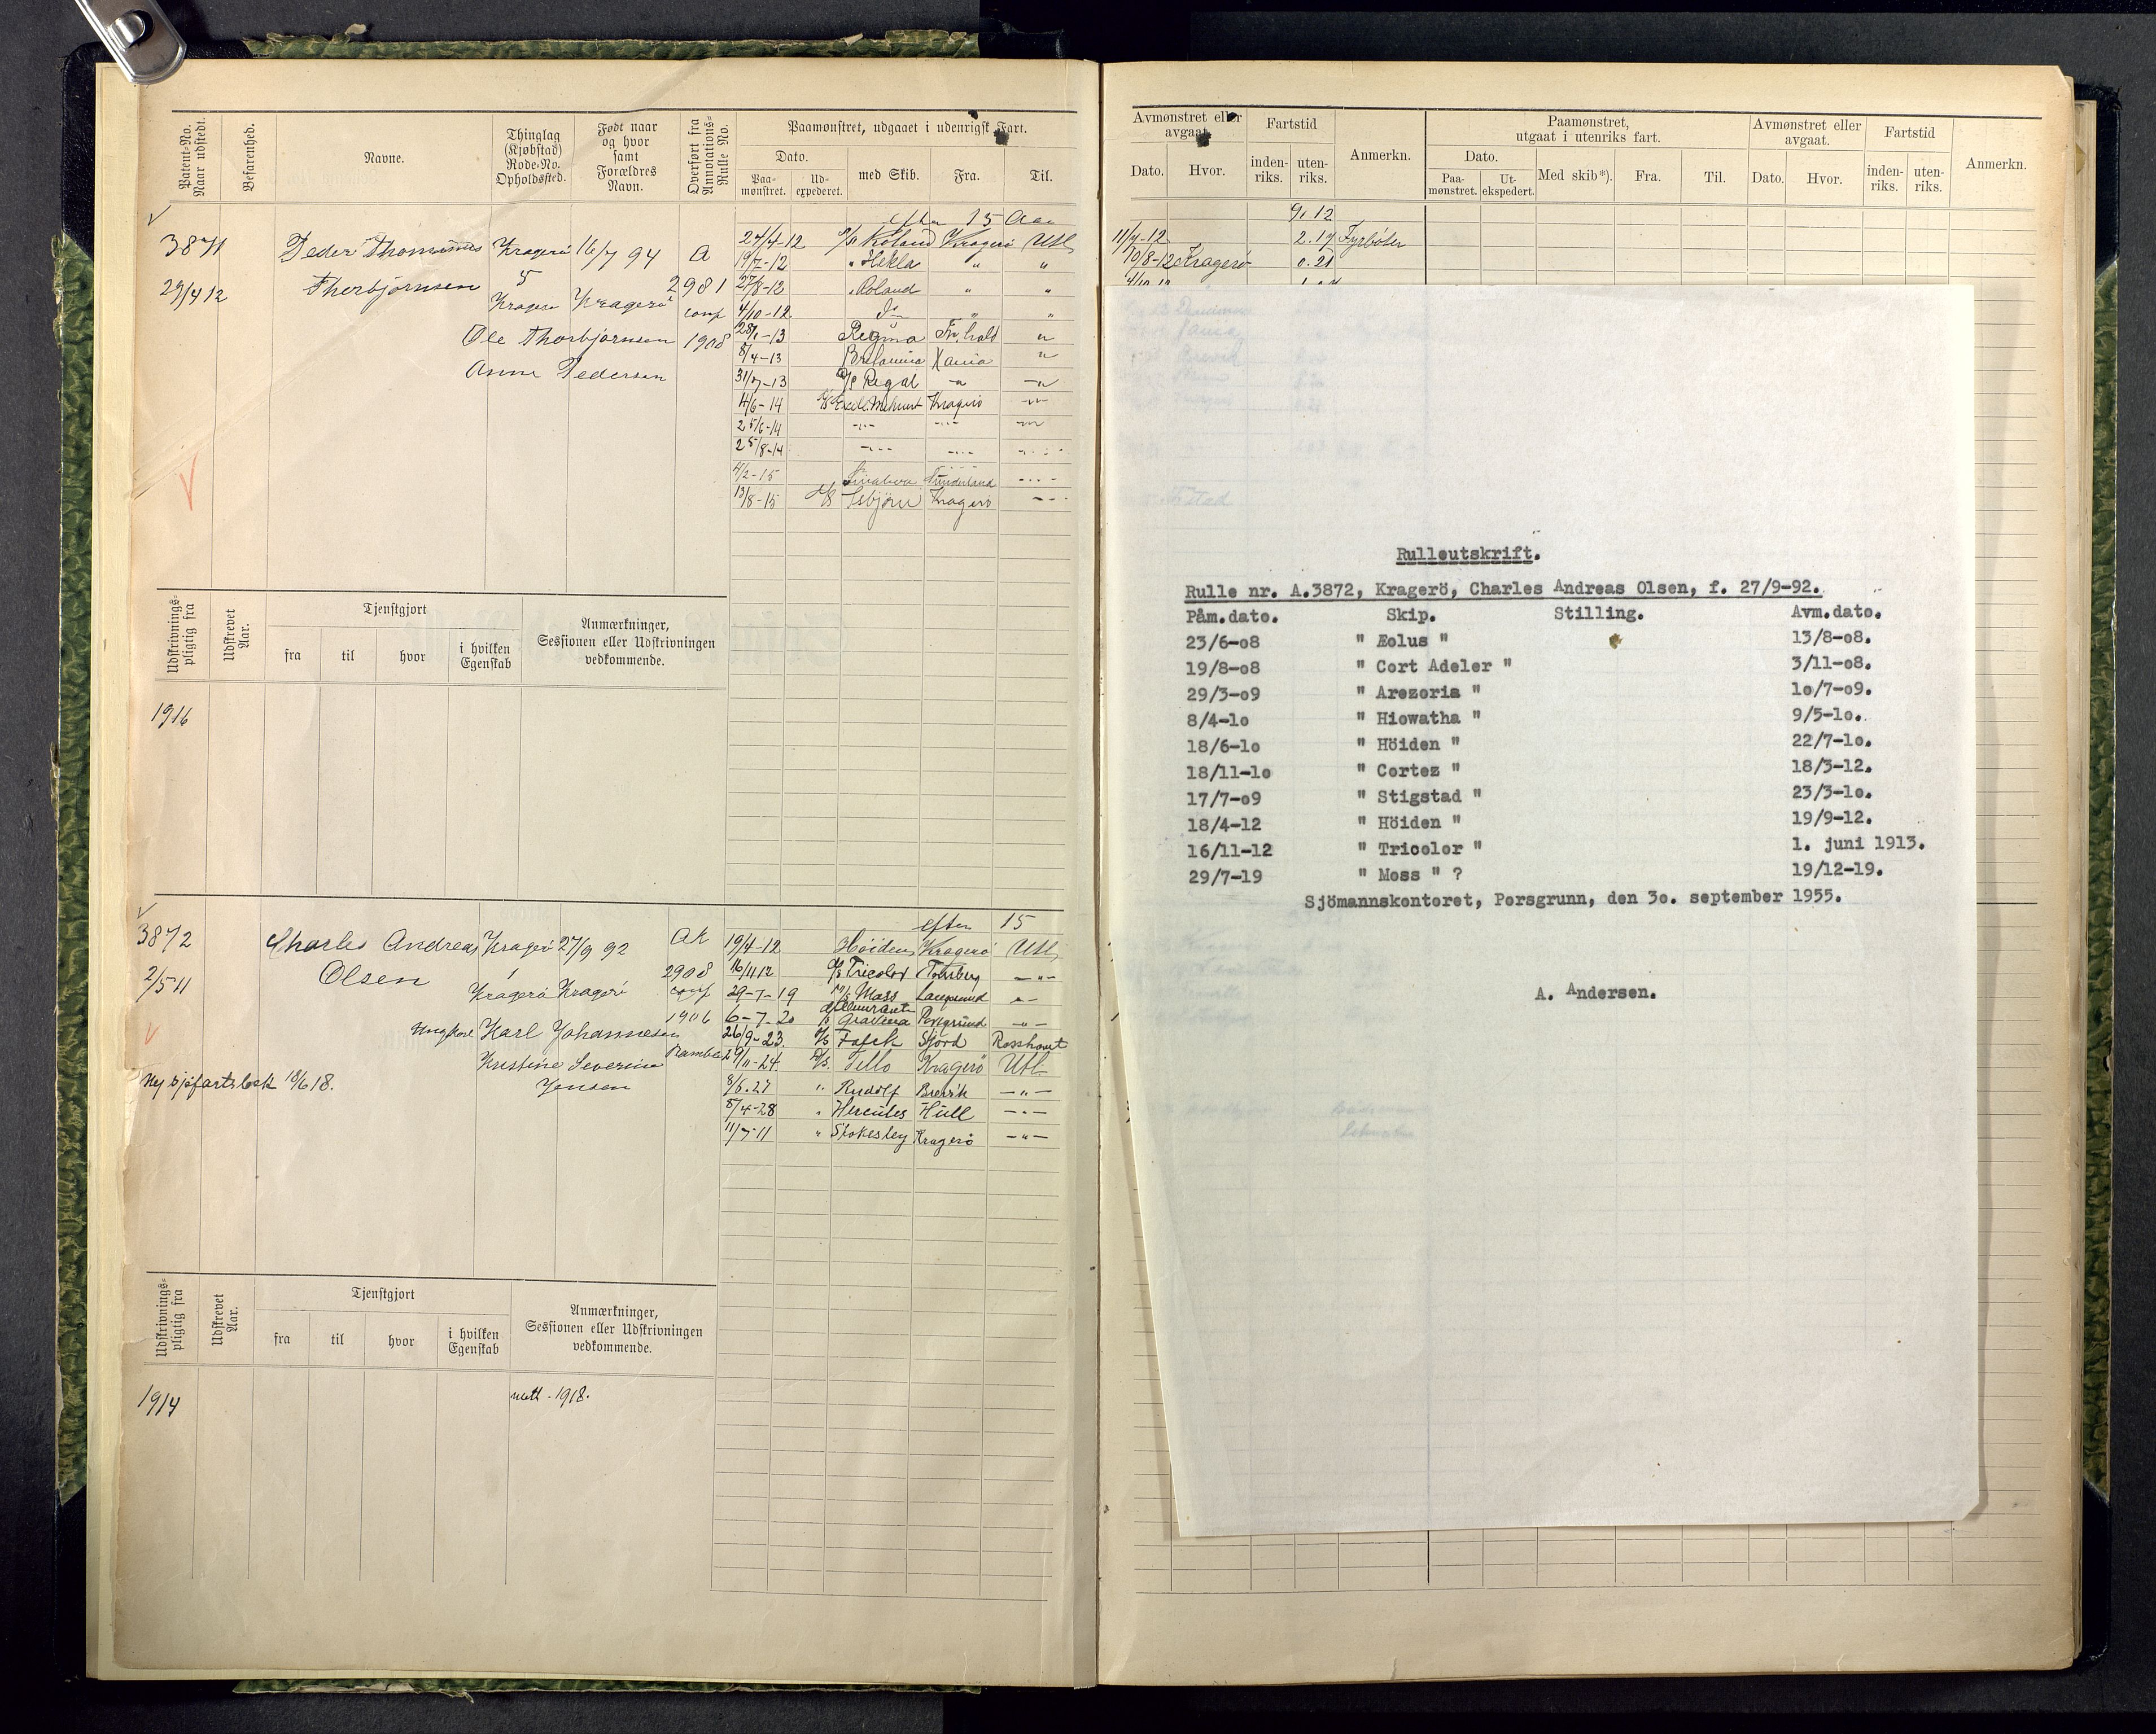 Patent-No. Naar udstedt.
Befarenhed.
Navne.
Thinglag (Kjøbstad) Rode-No. Opholdssted.
Født naar og hvor samt Forældres Navn.
Overført fra Annotations-Rulle No.
Paamønstret, udgaaet i udenrigsk Fart.
Dato.
Paa-mønstret.
Ud-expederet.
med Skib.
Fra.
Til.
3871 Peder Thominius Kragerø 16/7 94 A
29/4 12 Thorbjørnsen 5 2981
Kragerø Kragerø conf
Ole Thorbjørnsen 1908
Anne Pedersen
24/4-12 Roland Kragerø Utl
19/7-12 " Hekla " "
27/8-12 " Roland " "
4/10-12 Do " "
28/1-13 Regina Fr.hald "
8/4-13 Xania "
31/7-13 Regal " "
4/6-14 Kragerø
25/6-14
25/8-14
4/2-15 Sunderland
13/8-15 Isbjørn Kragerø
Udskrivnings-pligtig fra
Udskrevet Aar.
Tjenstgjort
fra til hvor i hvilken Egenskab
Anmærkninger, Sessionen eller Udskrivningen vedkommende.
1916
efter 15
3872 Charles Andreas Kragerø 27/9 92 AK
2/5 11 Olsen 1 2908
Kragerø Kragerø conf
1906
Ungkarl Karl Johannesen
Kristine Severine Bamble
Jensen
Ny sjøfartsbok 18/6 18.
19/4-12 Høiden Kragerø Utl
16/11 12 Tricolor Tønsberg
29-7-19 Moss
6-7-20 Gravina Porsgrund
26/9-23 Falck Sfjord Rosshavet
29/11-24 D/S. Tello Kragerø Utl
8/6.27 " Rudolf Brevik
8/4-28 " Hercules Hull
11/7-11 " Stokesley Kragerø
Udskrivnings-pligtig fra
Udskrevet Aar.
Tjenstgjort
fra til hvor i hvilken Egenskab
Anmærkninger, Sessionen eller Udskrivningen vedkommende.
1914
1918.
Avmønstret eller avgaat.
Dato. Hvor.
Fartstid
inden-riks. uten-riks.
Anmerkn.
Paamønstret, utgaat i utenriks fart.
Dato.
Paa-mønstret. Ut-ekspedert.
Med skib*). Fra. Til.
Avmønstret eller avgaat.
Dato. Hvor.
Fartstid
inden-riks. uten-riks.
Anmerkn.
9. 12
11/7-12 2.17 Fyrbøter
10/8-12 Kragerø 0.21
Rulleutskrift.
Rulle nr. A.3872, Kragerö, Charles Andreas Olsen, f. 27/9-92.
Påm.dato. Skip. Stilling. Avm.dato.
23/6-o8 " Æolus " 13/8-o8.
19/8-o8 " Cort Adeler " 3/11-o8.
29/3-o9 " Arezoria " lo/7-o9.
8/4-lo " Hiowatha " 9/5-lo.
18/6-lo " Höiden " 22/7-lo.
18/11-lo " Cortez " 18/3-12.
17/7-o9 " Stigstad " 23/3-lo.
18/4-12 " Höiden " 19/9-12.
16/11-12 " Tricolor " 1. juni 1913.
29/7-19 " Moss " ? 19/12-19.
Sjömannskontoret, Porsgrunn, den 3o. september 1955.
A. Andersen.